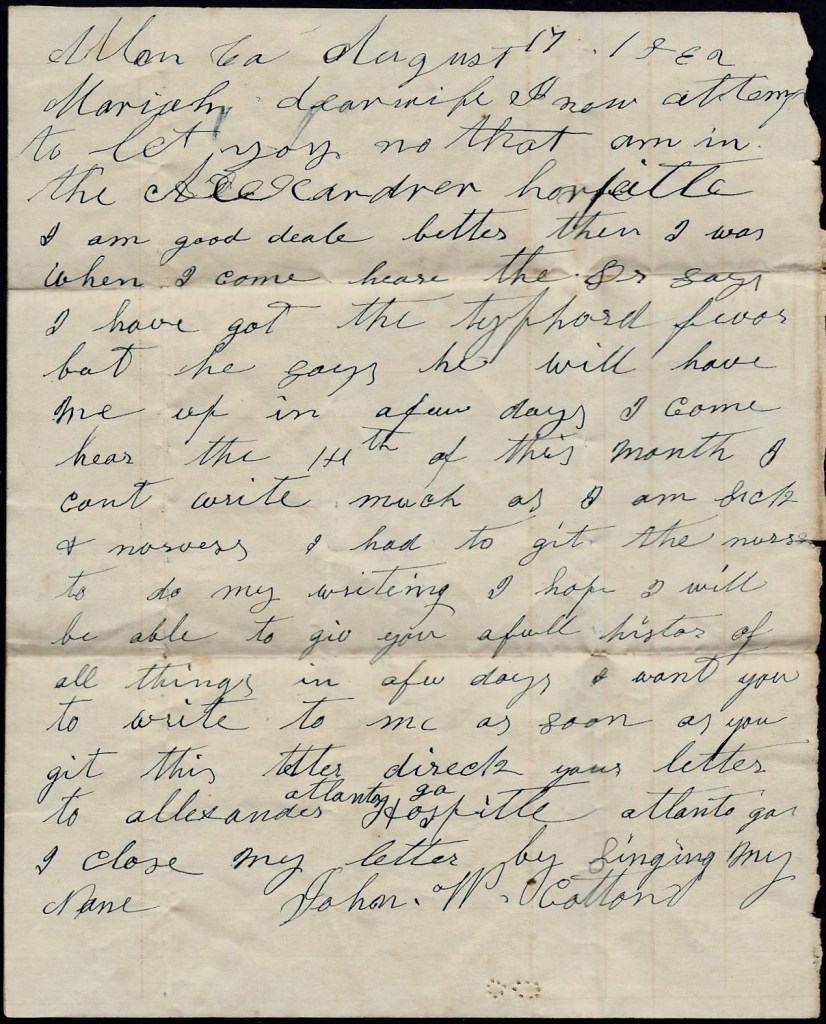 August 17. 1862
Mariah dear wife I now attemp
to let you no that am in
the Alexandrer hospitle
I am good deale better then I was
when I come heare the Dr says
I have got the typhord fevor
but he says he will have
me up in afuw days I come
hear the 14th of this month I
cant write much as I am sick
& norvess I had to git the nurse
to do my writing I hope I will
be able to giv you afull histor of
all things in afu days I want you
to write to me as soon as you
git this letter direck your letter
atlanta ga
to allexander Hospitle atlanta ga
I close my letter by singing my
Name John. W. Cotton